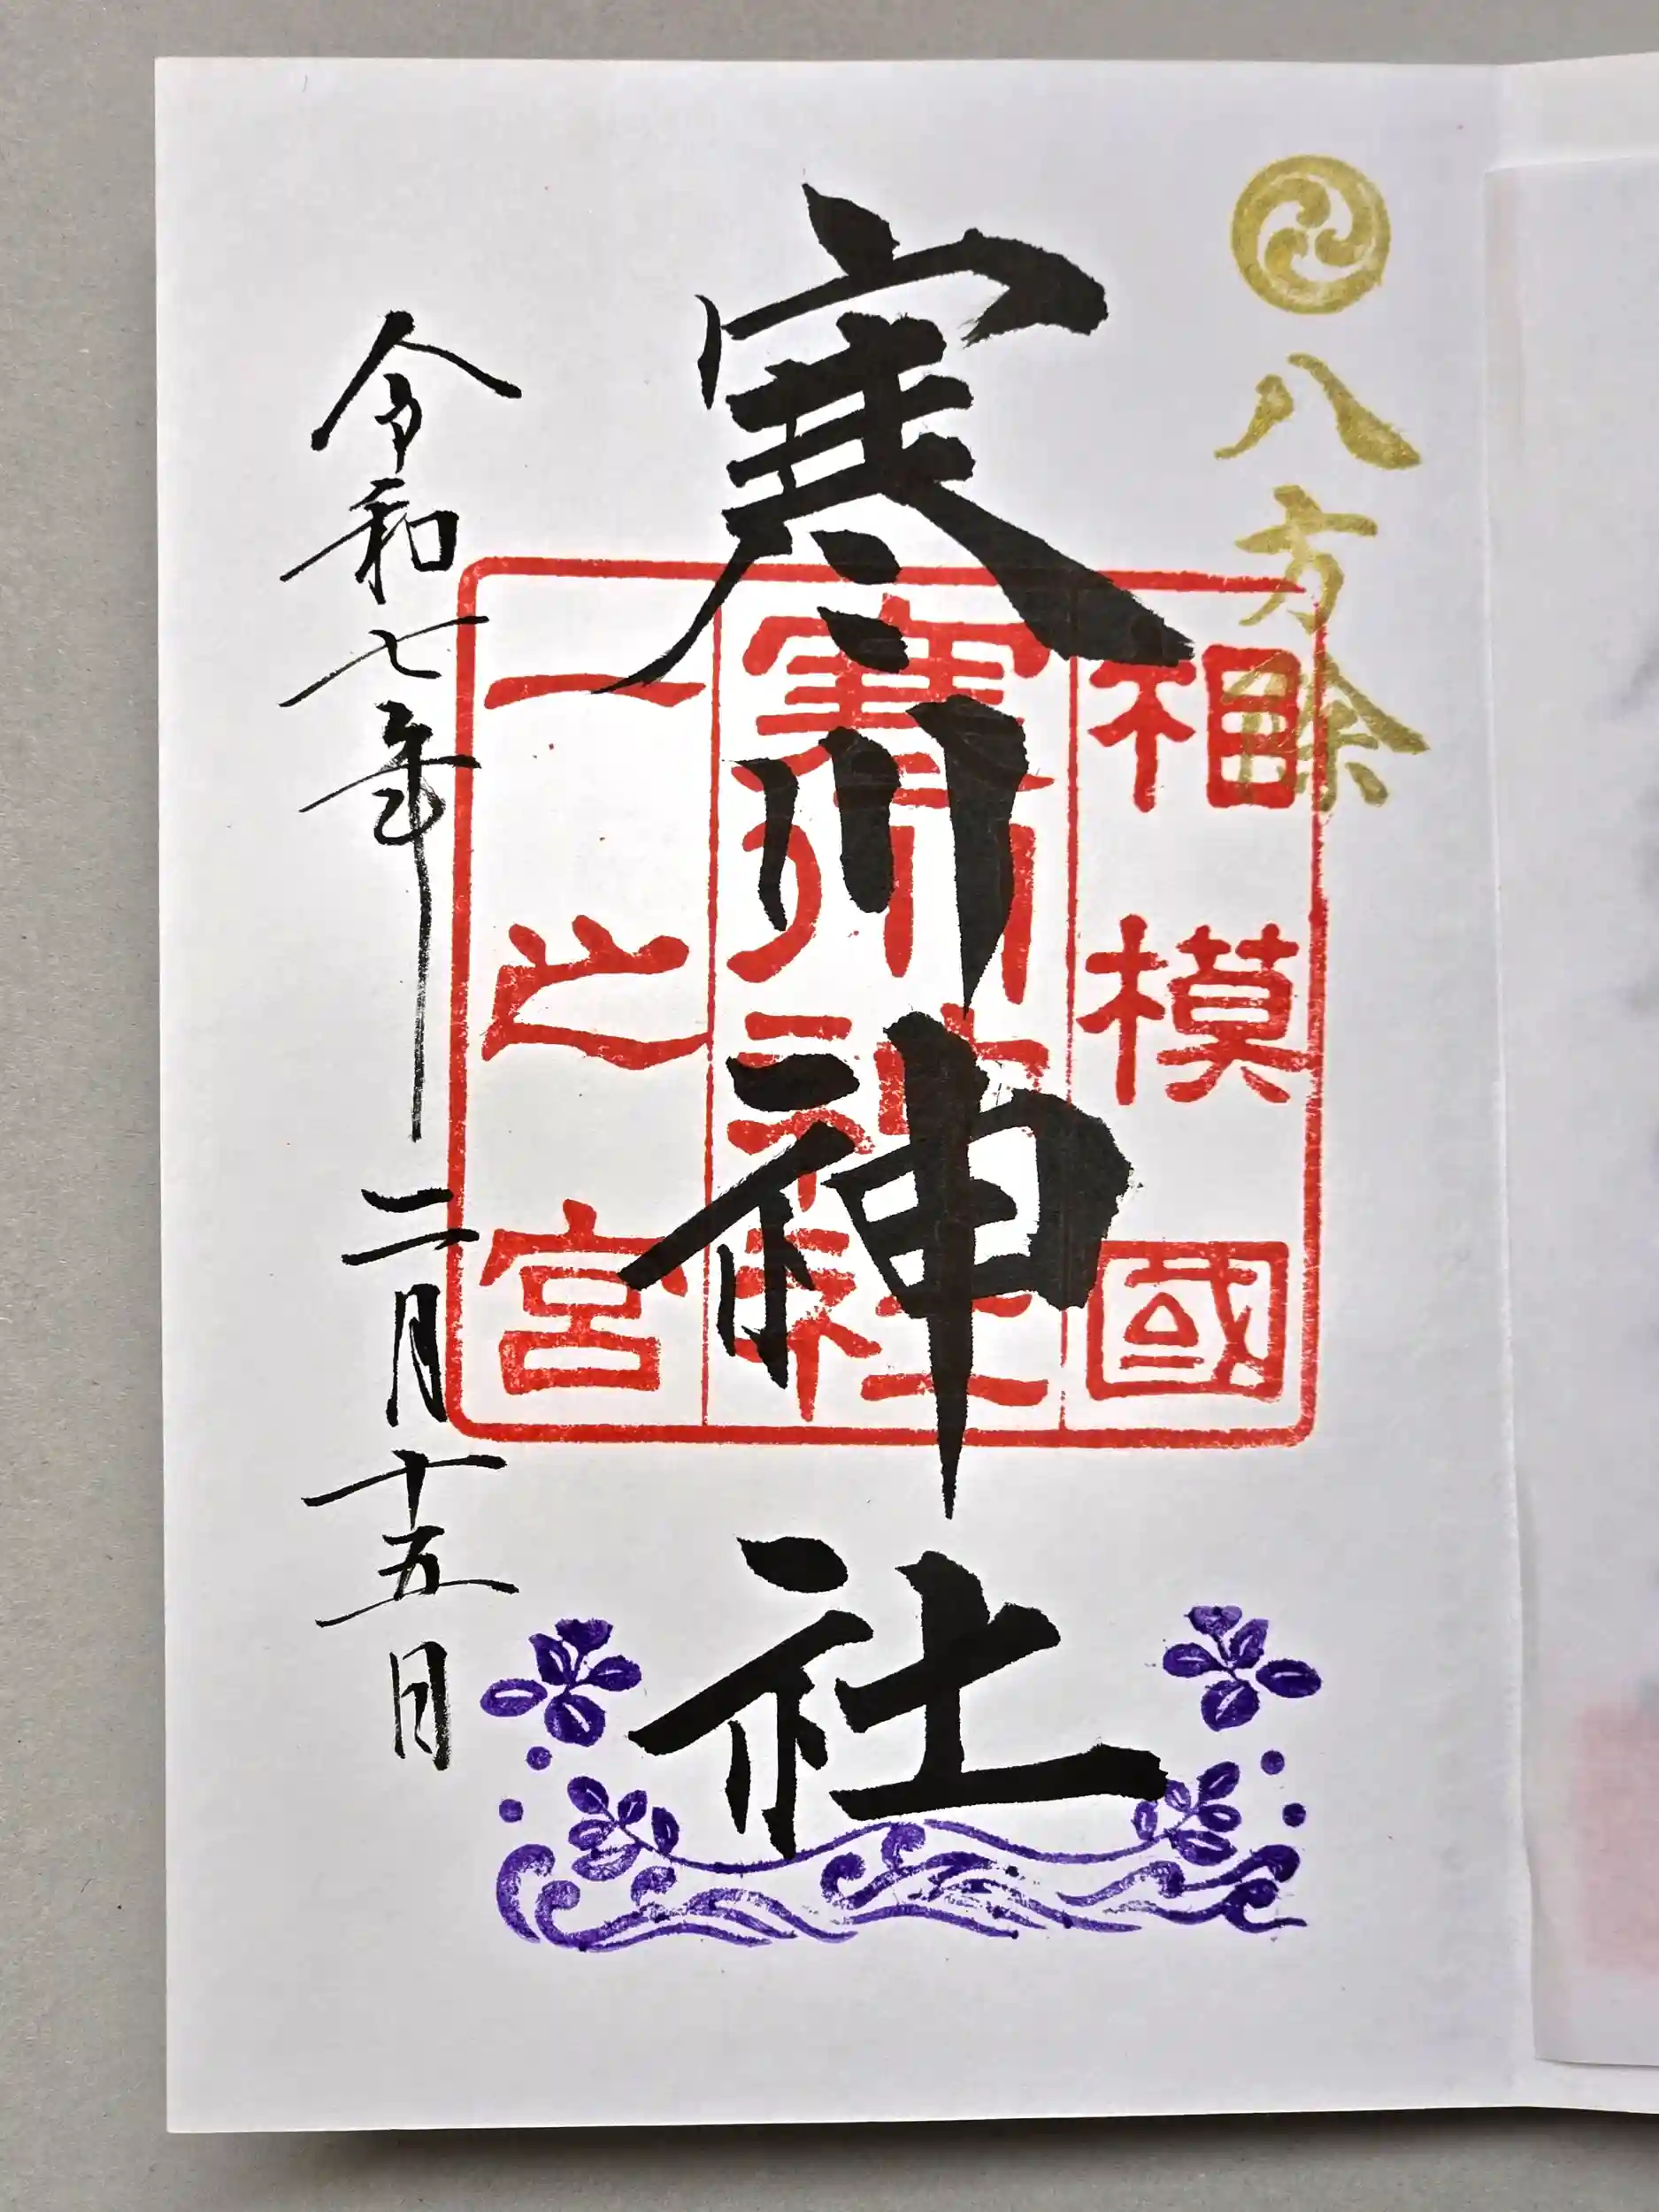 八方除
相模國
寒川神社
一之宮
寒川神社
令和七年二月十五日